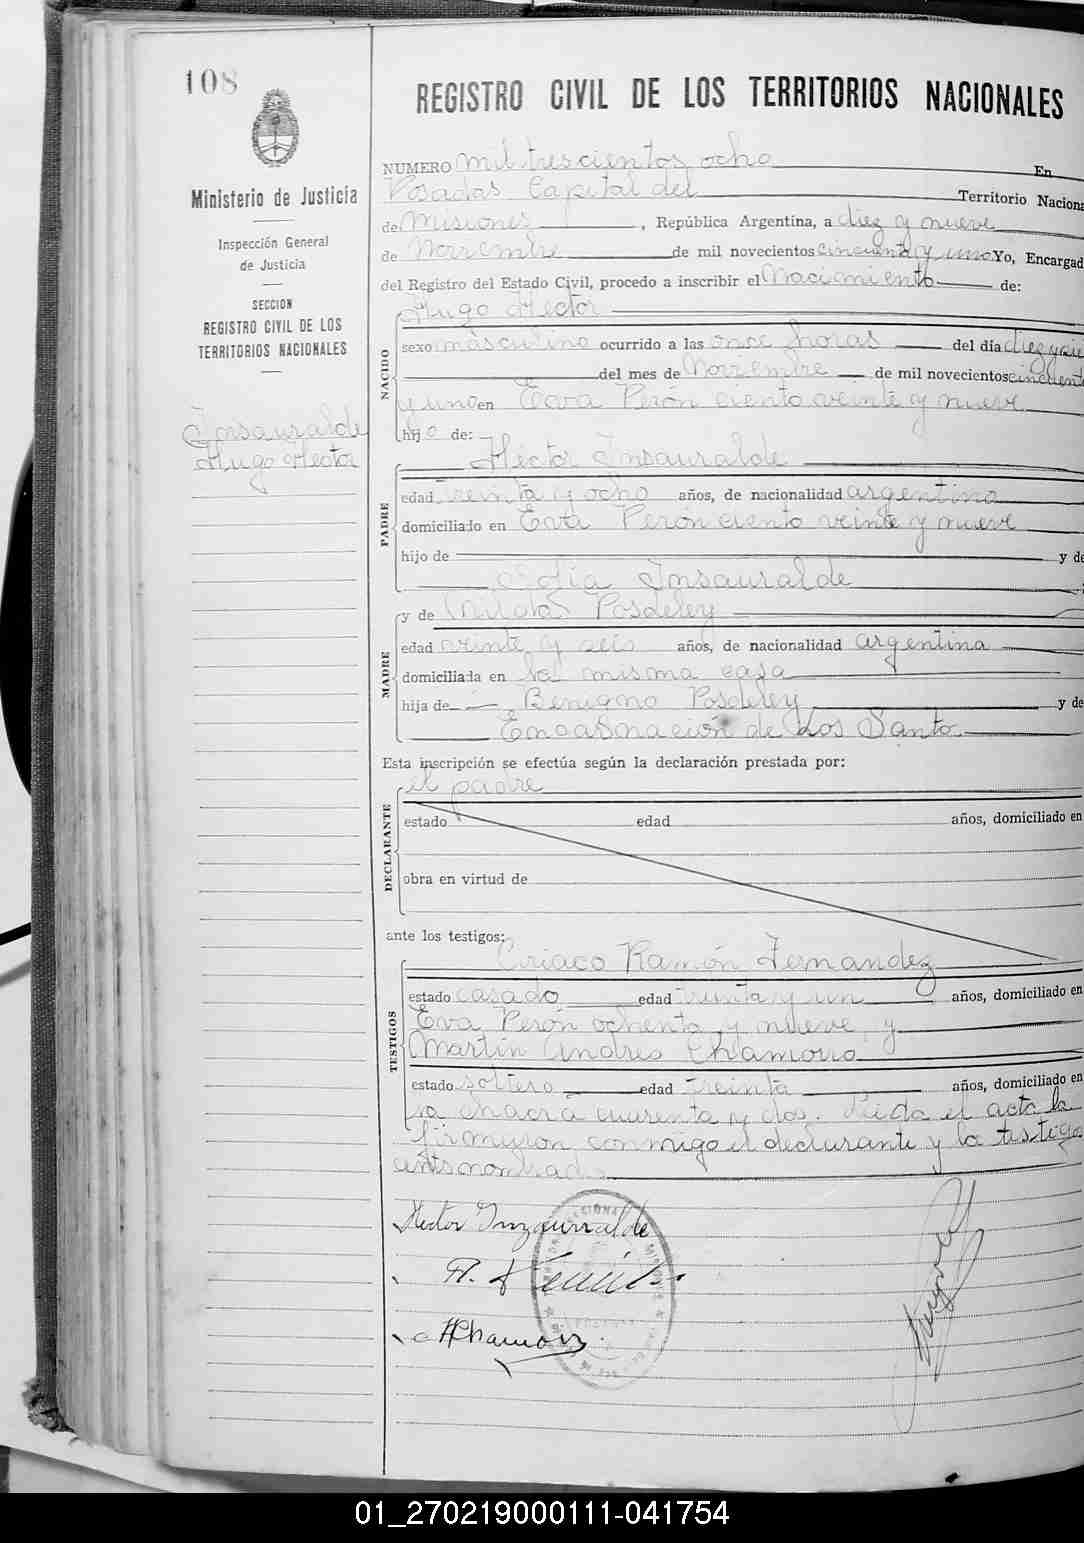 108
REGISTRO CIVIL DE LOS TERRITORIOS NACIONALES
Ministerio de Justicia
Inspección General
de Justicia
SECCION
REGISTRO CIVIL DE LOS
TERRITORIOS NACIONALES
Insauralde
Hugo Hector
NUMERO mil trescientos ocho En
Posadas Capital del Territorio Naciona
de Misiones, República Argentina, a diez y nueve
de Noviembre de mil novecientos cincuenta y uno Yo, Encargad
del Registro del Estado Civil, procedo a inscribir el Nacimiento de:
NACIDO
Hugo Hector
sexo masculino ocurrido a las once horas del día
del mes de Noviembre de mil novecientos cincuent
y uno en Eva Perón ciento veinte y nueve
hijo de:
PADRE
Héctor Insauralde
edad treinta y ocho años, de nacionalidad argentino
domiciliado en Eva Perón ciento veinte y nueve
hijo de y de
Sofía Insauralde
MADRE
y de Posdeley
edad veinte y seis años, de nacionalidad argentina
domiciliada en la misma casa
hija de Benigno Posdeley y de
Encarnación de Los Santo
Esta inscripción se efectúa según la declaración prestada por:
DECLARANTE
el padre
estado edad años, domiciliado en
obra en virtud de
ante los testigos:
TESTIGOS
Ciriaco Ramón Fernandez
estado casado edad treinta y un años, domiciliado en
Eva Perón ochenta y nueve y
Martín Andres Chamorro
estado soltero edad treinta años, domiciliado en
la chacra cuarenta y dos. Leida el acta la
firmaron conmigo el declarante y lo testigo
antes nombrado
Hector Inzaurralde
01_270219000111-041754